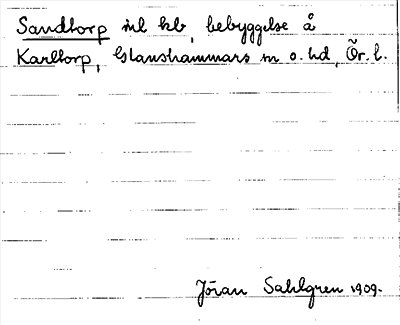 Sandtorp inl kb, bebyggelse å
Karltorp, Glanshammars sn o. hd, Ör. l.
Jöran Sahlgren 1909.